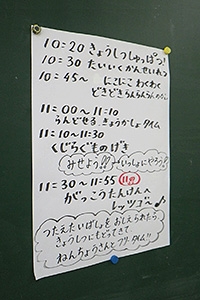 10:20 きょうしつしゅっぱつ!
10:30 たいいくかんせいれつ
10:45~ にこにこ わくわく
どきどき
11:00~11:10
らんどせる きょうかしょ タイム
11:10~11:30
くじらぐものげき
みせよう!! いっしょにやろう!!
11:30~11:55
がっこうたんけんへ
レッツゴー♪
つたえたいばしょを おしえられたら
きょうしつにもどってきて
ねんちょうさんと フリータイム!!